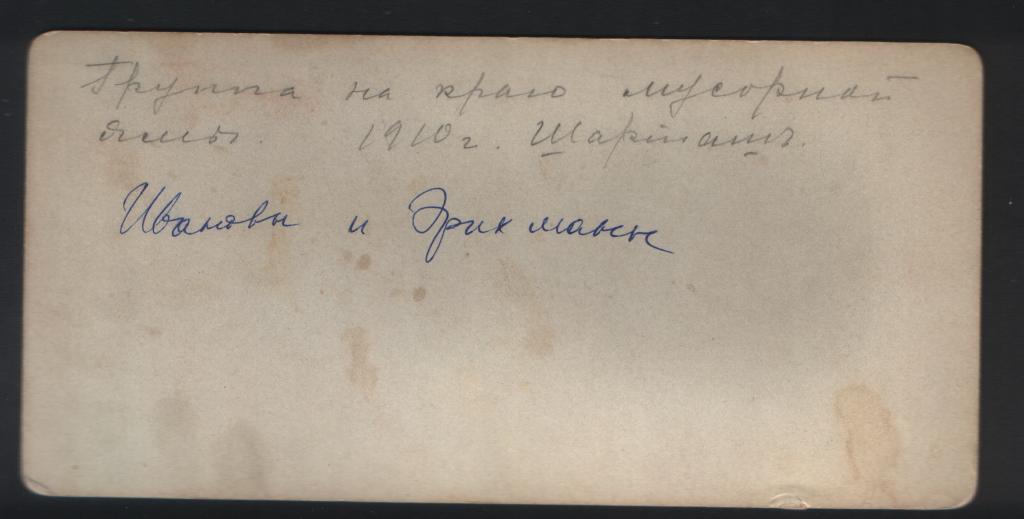 Группа на краю мусорной
ямы. 1910 г. Шарташъ.
Ивановы и Эрихманы